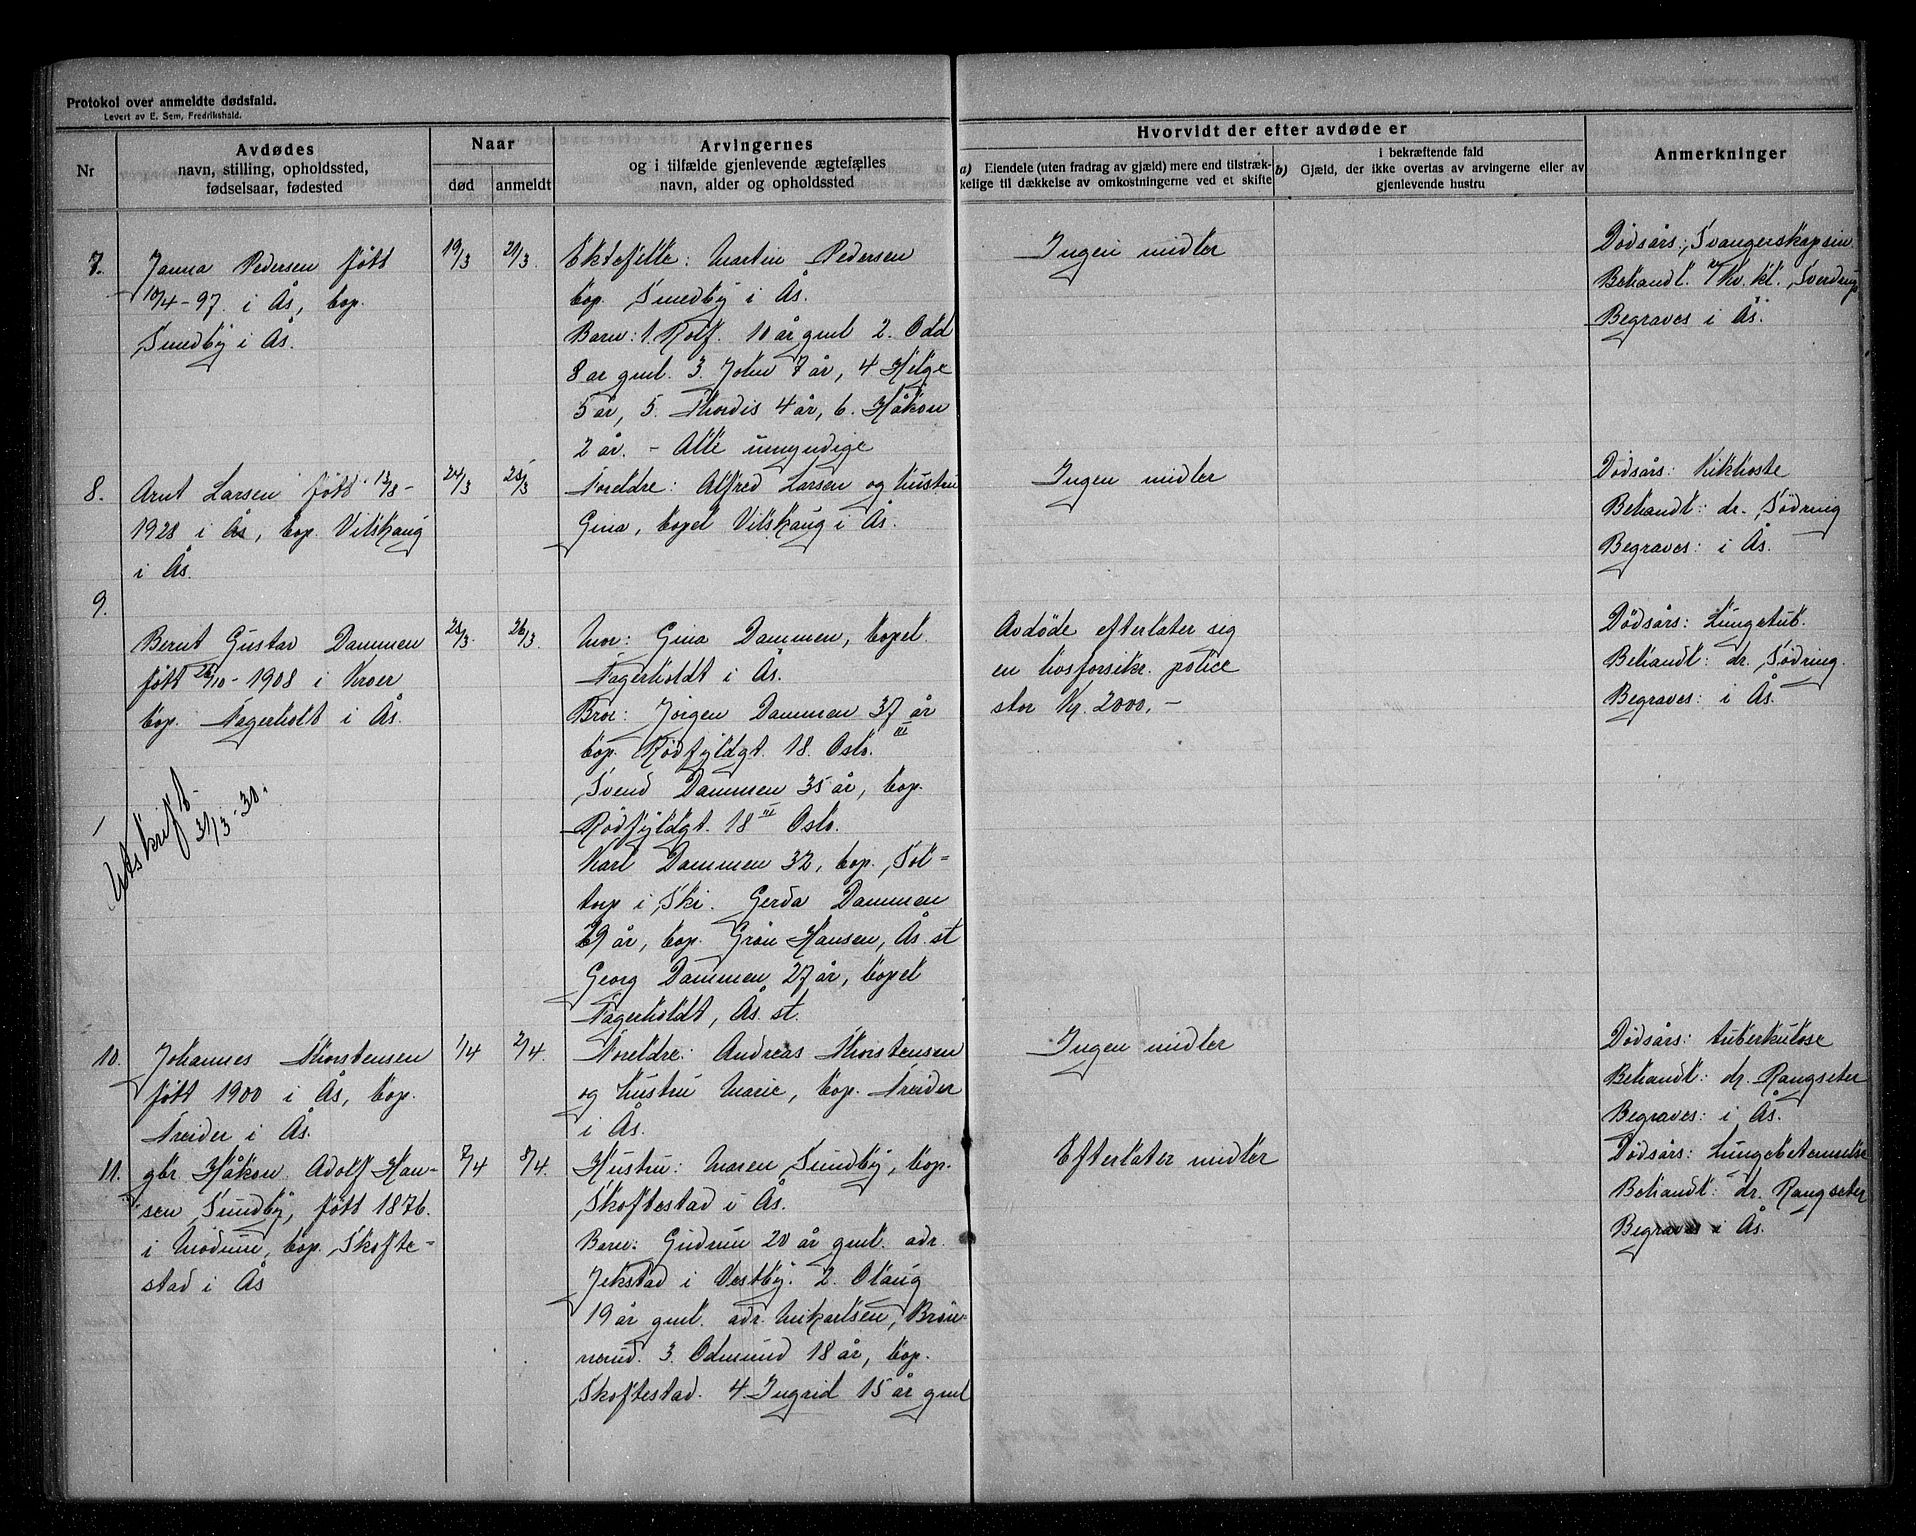 Protokol over anmeldte dødsfald.
Levert av E. Sem, Fredrikshald.
Nr
Avdødes
navn, stilling, opholdssted,
fødselsaar, fødested
Naar
død
anmeldt
Arvingernes
og i tilfælde gjenlevende ægtefælles
navn, alder og opholdssted
Hvorvidt der efter avdøde er
a) Eiendele (uten fradrag av gjæld) mere end tilstræk-
kelige til dækkelse av omkostningerne ved et skifte
b) I bekræftende fald
Gjæld, der ikke overtas av arvingerne eller av
gjenlevende hustru
Anmerkninger
7.
Janna Pedersen født
10/4-97. i Ås, bop.
Sundby i Ås.
19/3
21/3.
Ektefelle: Martin Pedersen
bop. Sundby i Ås.
Barn: 1. Rolf. 10 år gml 2. Odd
8 år gml. 3. John 7 år, 4 Helge
5 år, 5. Thordis 4 år, 6. Håkon
2 år. - Alle umyndige
Ingen midler
Dødsårs:, Svangerskapsin.
Behandl. Kv. kl., Sverdrup
Begraves i Ås.
8.
Arnt Larsen født 13/8-
1928 i Ås, bop. Vilskaug
i Ås.
24/3
25/3
Foreldre: Alfred Larsen og hustru
Gina, bopel Vilskaug i Ås.
Ingen midler
Dødsårs: Kikhoste
Behandl: dr. Södring
Begraves: i Ås.
9.
Bernt Gustav Dammen
født 26/10-1908 i Kroer
bop. Fagerholt i Ås.
25/3.
26/3.
Mor: Gina Dammen, bopel.
Fagerholdt i Ås.
Bror: Jörgen Dammen 37 år
bop. Rödfyldgt. 18 III Oslo.
Svend Dammen 35 år, bop.
Rödfyldgt. 18 III Oslo.
Karl Dammen 32, bop. Sol-
torp i Ski. Gerda Dammen
29 år, bop. Grön Hansen, Ås. st
Georg Dammen 27 år, bopel
Fagerholdt, Ås. st.
Avdøde efterlater sig
en livsforsikr. police
stor Kr. 2000,-
Dødsårs: Lungetub.
Behandl: dr. Södring.
Begraves: i Ås.
Utskrift
31/3-30.
10.
Johannes Thorstensen
født 1900 i Ås, bop.
Nreider i Ås.
1/4
2/4.
Foreldre: Andreas Thorstensen
og hustru Marie, bop. Nreider
i Ås.
Ingen midler
Dødsårs: tuberkulose
Behandl: dr. Rangseter
Begraves: i Ås.
11.
gbr Håkon Adolf Han-
sen Sundby, født 1876.
i Modum, bop. Skofte-
stad i Ås
7/4
8/4.
Hustru: Maren Sundby, bop.
Skoftestad i Ås.
Barn: Gudrun 20 år gml. adr.
Jekstad i Vestby. 2. Olaug
19 år gml. adr. Mikaelsen, Brön-
nerud. 3. Odmund 18 år, bop.
Skoftestad. 4 Ingrid 15 år gml
Efterlater midler
Dødsårs: Lungebetennelse
Behandl: dr. Rangseter
Begraves i Ås.